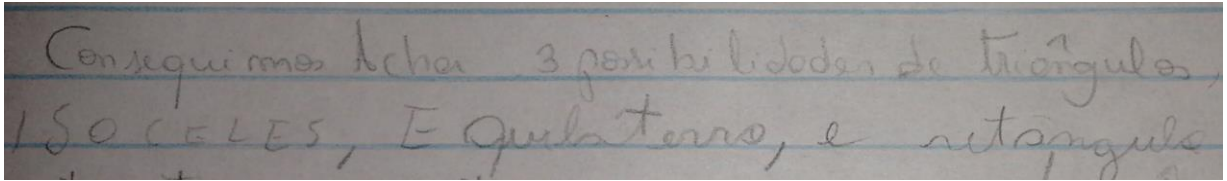 Conseguimos Achar 3 posibilidades de triângulos,
ISOCELES, Equilaterro, e retângulo